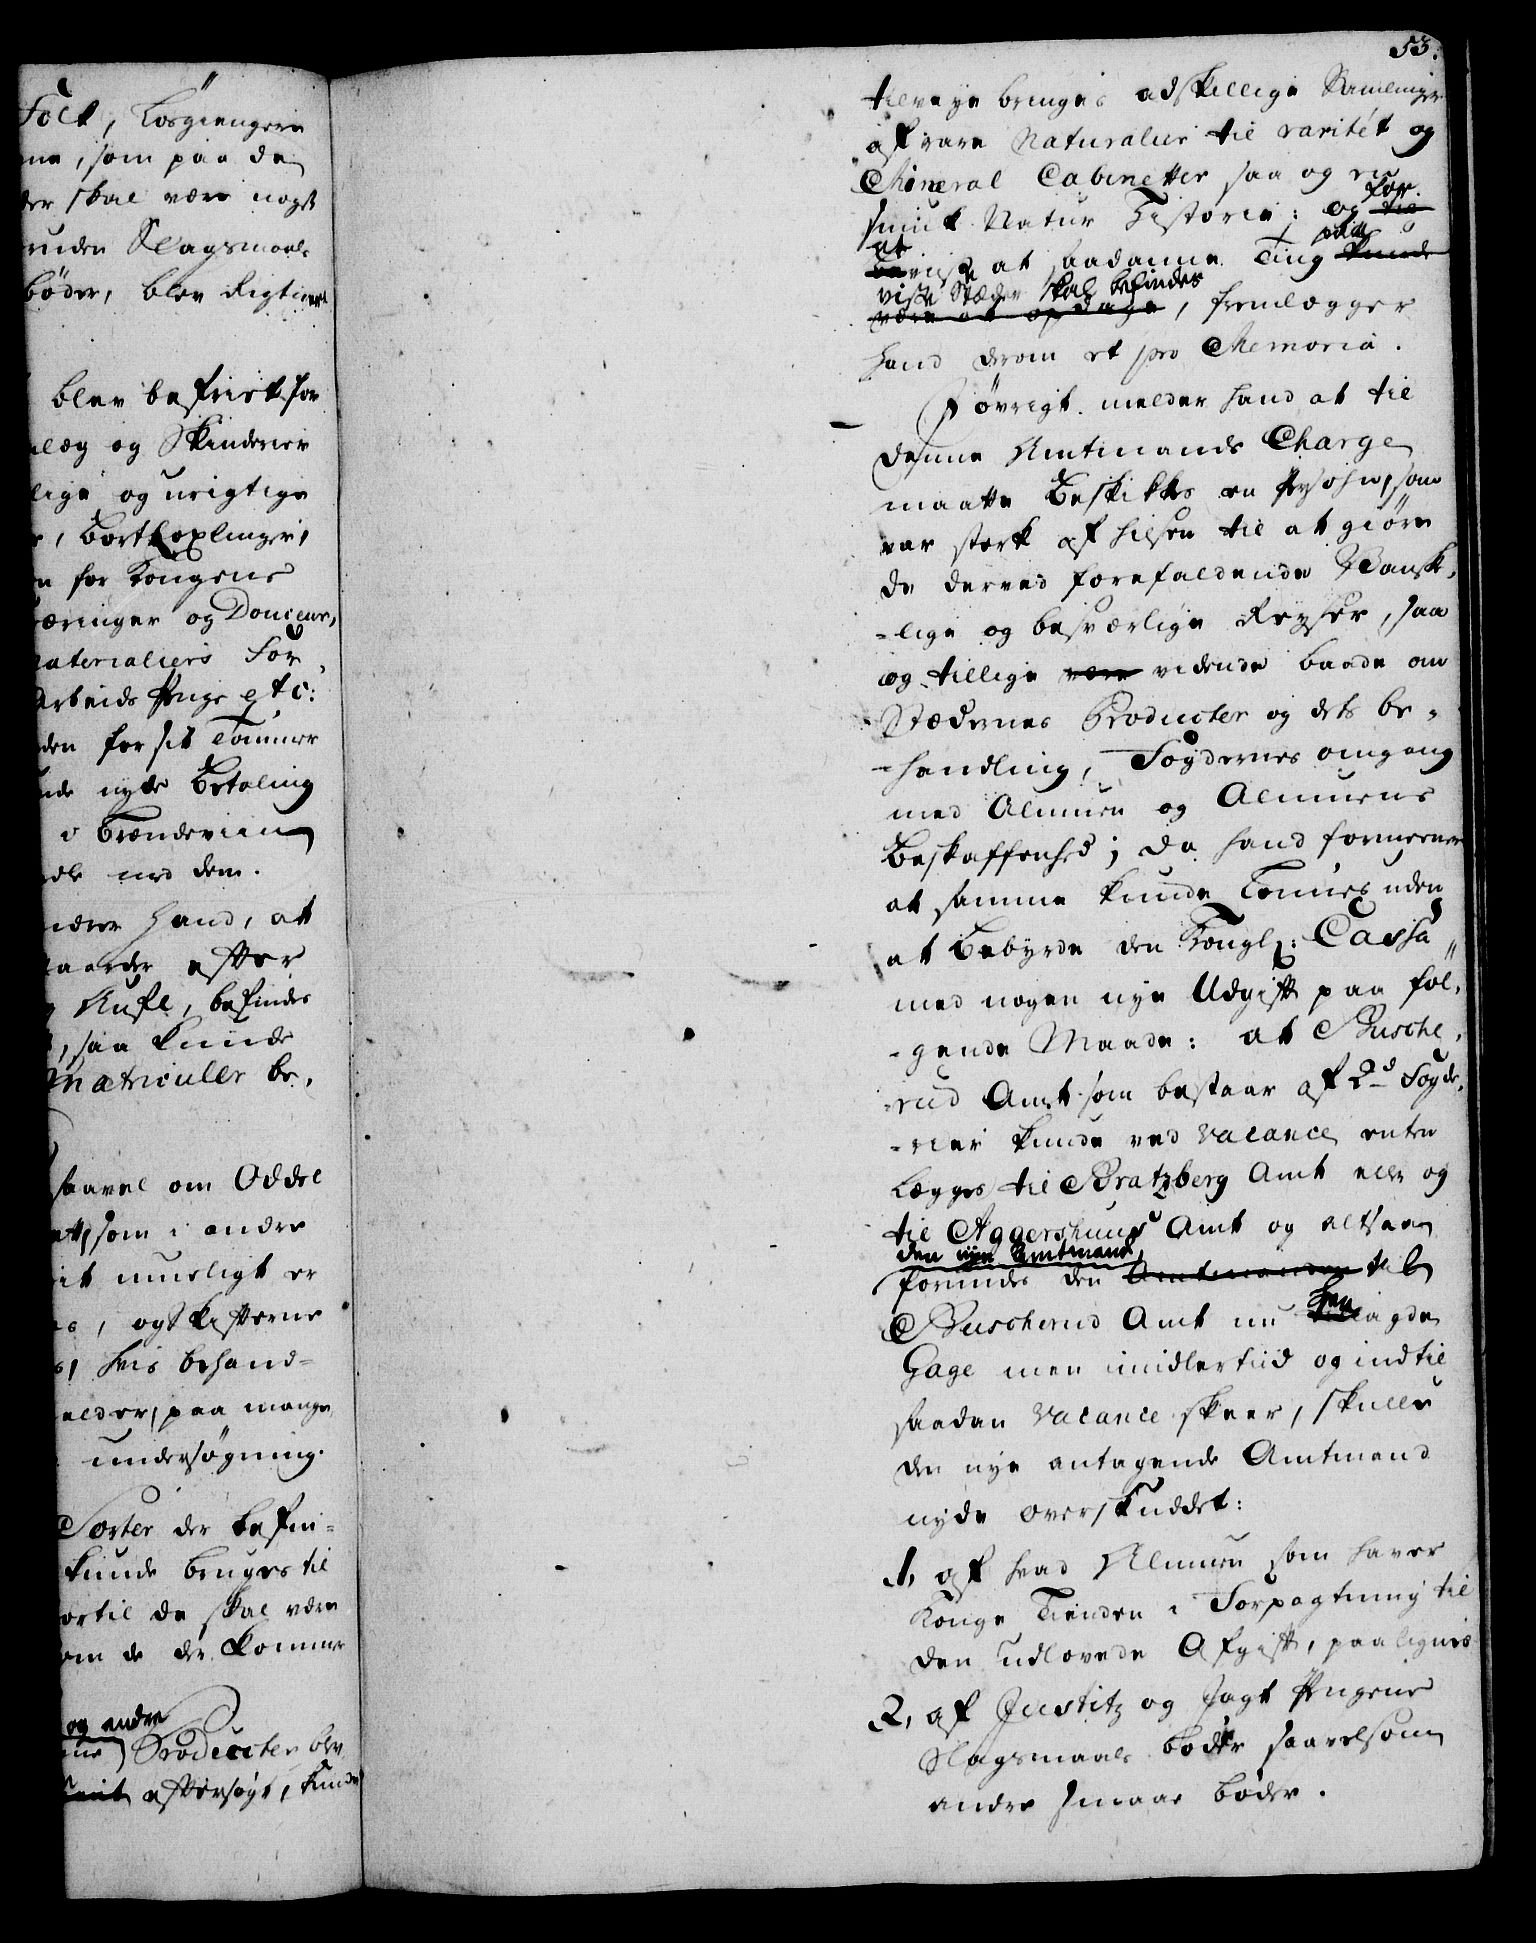 Folk, Løsgiengere
ne, som paa de
der skal være nogst
uden Slagsmaals
bøder, blev Rigtig
blev befriet for
læg og Skinderier
lige og urigtige
, Bortkoxlinger,
for Kongens
æringer og Douceur,
aterialiers For
Arbeids Penge etc:
den for sit Tømmer
nde nyde Betaling
i Brændeviin
med dem.
hand, at
aarder efter
Aufl, befindes
, saa kunde
Matriculer be,
saavel om Oddel
, som i andre
it mueligt er
, og Skifterne
, hvis behand=
elder, paa mange
undersøgning.
Sorter der befin=
kunde bruges til
ortil de skal være
om de der komme
og andre
Producter blev
eftersøgt, kunde
53.
tilveye bringes adskillige Samlinger
af rare Naturalier til raritét og
Mineral Cabinetter saa og en
for
smuk Natur Historie: og til
at paa
bevise at saadanne Ting kunde
visse Stæder skal befindes
være at opdage, fremlægger
hand derom et pro Memoria.
I øvrigt melder hand at til
denne Amtmands Charge
maatte Beskikkes en Persohn, som
var sterk af Helsen til at giøre
de derved forefaldende Vansk,
-lige og besværlige Reyser, saa
og tillige være vidende baade om
Stædernes Producter og dets be-
-handling, Fogdernes omgang
med Almuen og Almuens
Beskaffenhed; da hand formeener
at samme kunde Lønnes uden
at Bebyrde den Kongl: Cassa
med nogen nye Udgift paa føl,
-gende Maade: at Busche,
-rud Amt som bestaar af 2de Fogde,
-rier kunde ved Vacance enten
Lægges til Bratzberg Amt eller og
til Aggershuus Amt og altsaa
den nye Amtmand
formindes den Amtmanden til
hen
Buscherud Amt nu lagde
Gage men imidlertiid og indtil
saadan Vacance skeer, skulle
den nye antagende Amtmand
nyde overskuddet:
1, af hvad Almuen som haver
Konge Tienden i Forpagtning til
den udlovede Afgift, paalignes
2, af Justitz og Jagt Pengene
Slagsmaals bøder saavelsom
andre smaae bøder.